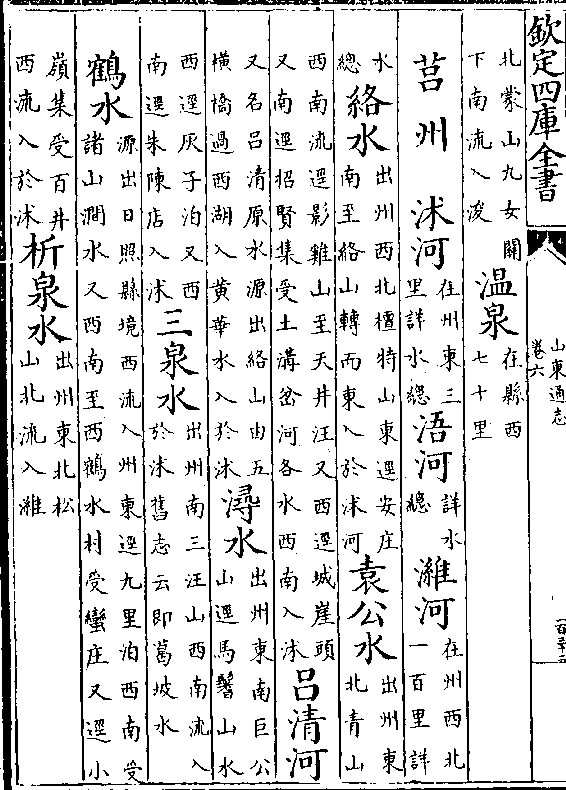 欽定四庫全書
山東通志
卷六
北蒙山九女關
下南流入浚
溫泉
在縣西
七十里
莒州
沭河
在州東三
里詳水總
浯河
詳水
總
濰河
在州西北
一百里詳
水
總
絡水
出州西北檀特山東逕安庄
南至絡山轉而東入於沭河
袁公水
出州東
北青山
西南流逕影雞山至天井汪又西逕城崖頭
又南逕招賢集受土溝岔河各水西南入沭
呂清河
又名呂清原水源出絡山由五
橫橋過西湖入黃華水入於沭
潯水
出州東南巨公
山逕馬鬐山水
西逕灰子泊又西
南逕朱陳店入沭
三泉水
出州南三汪山西南流入
於沭舊志云即葛坡水
鶴水
源出日照縣境西流入州東逕九里泊西南受
諸山澗水又西南至西鶴水村受蠻庄又逕小
嶺集受百井
西流入於沭
析泉水
出州東北松
山北流入濰